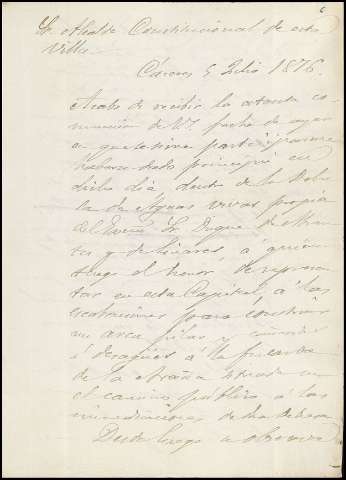 6
Sr. Alcalde Constitucional de esta
Villa.
Cáceres 5 Julio 1876.
Acabo de recibir la atenta co-
municacion de V.S. fecha de ayer
en que se sirve participarme
haberse dado principio en
dicho dia, dentro de la
de Aguas vivas propia
del Excmo. Sr. Duque de Abran-
tes y de Linares, á quien
tengo el honor de represen-
tar en esta Capital, á las
escabaciones para construir
un arca, pilas y
ó desagües á la fuente
de la situada en
el camino público á las
inmediaciones de dha dehesa
Desde luego